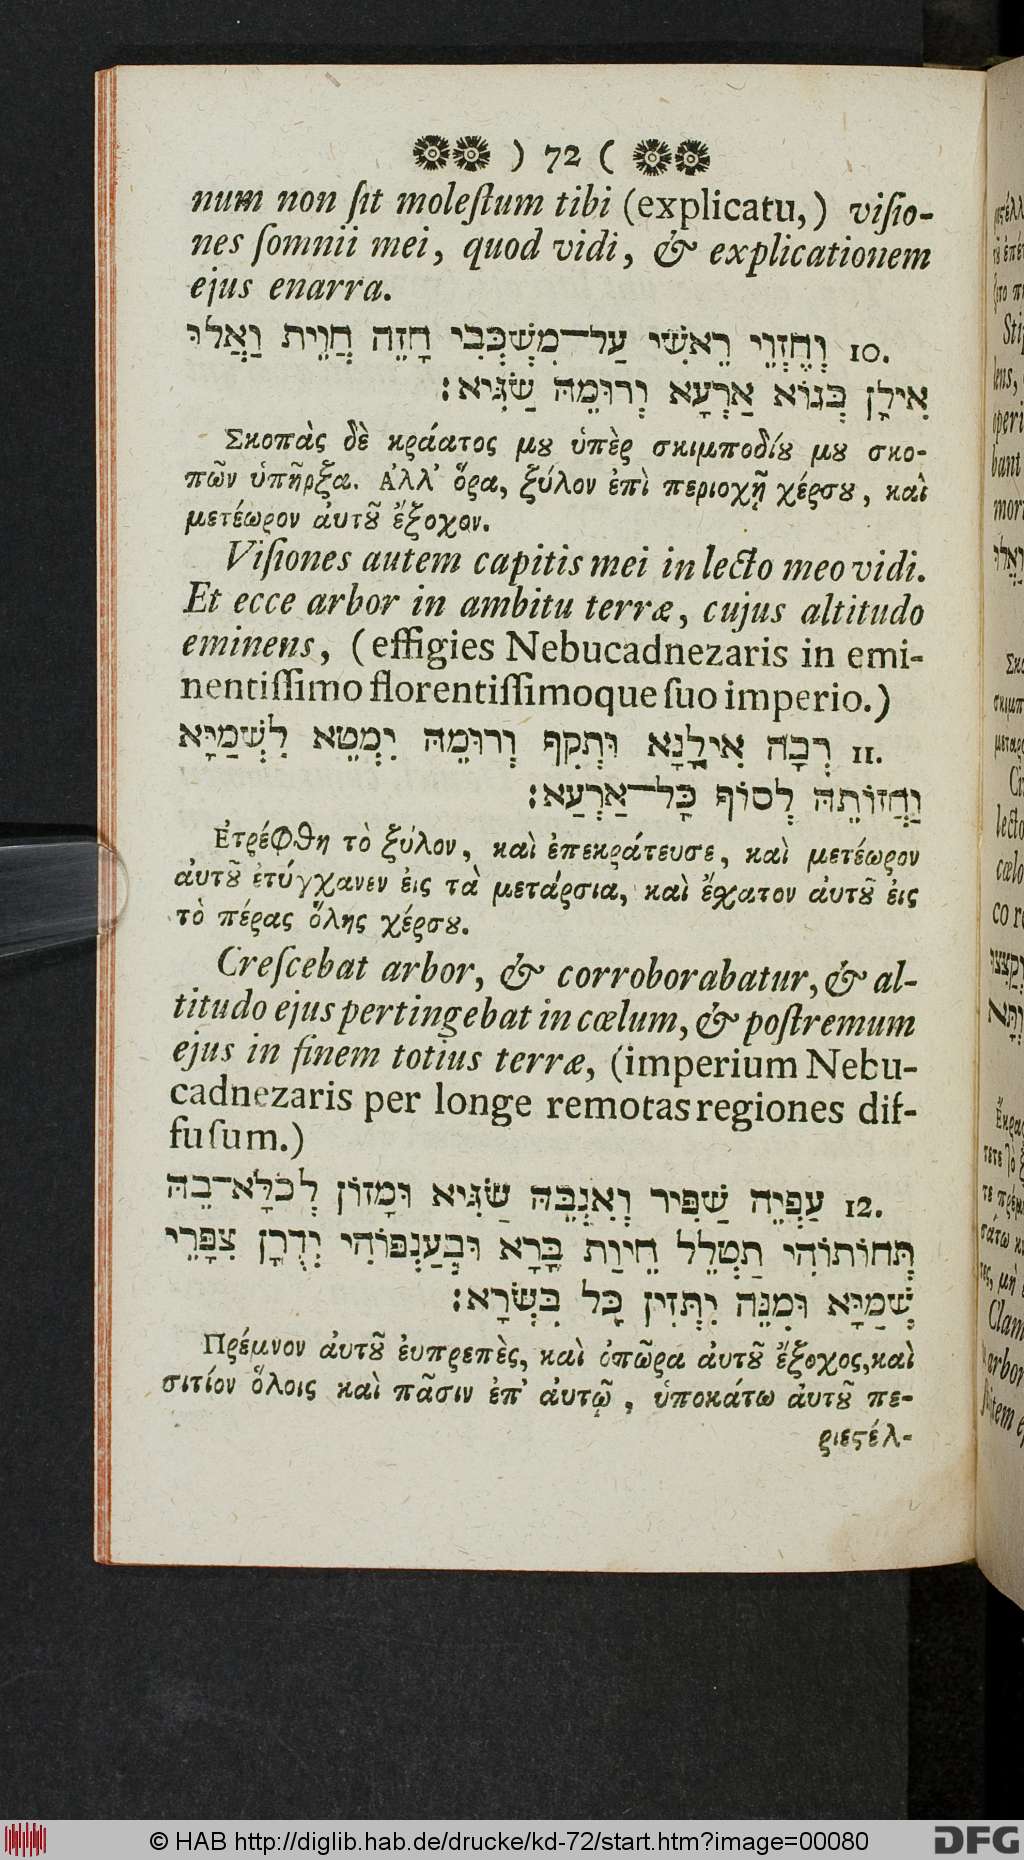 ) 72 (
num non ſit moleſtum tibi (explicatu,) viſio-
nes ſomnii mei, quod vidi, & explicationem
ejus enarra.
10. וְחֶזְוֵי רֵאשִׁי עַל־מִשְׁכְּבִי חָזֵה חֲוֵית וַאֲלוּ
אִילָן בְּגוֹא אַרְעָא וְרוּמֵהּ שַׂגִּיא׃
Σκοπὰς δὲ κράατος μȣ ὑπὲρ σκιμποδίȣ μȣ σκο-
πῶν ὑπῆρξα. Ἀλλ' ὅρα, ξύλον ἐπὶ περιοχῇ χέρσȣ, καὶ
μετέωρον ἀυτȣ͂ ἔξοχον.
Viſiones autem capitis mei in lecto meo vidi.
Et ecce arbor in ambitu terræ, cujus altitudo
eminens, (effigies Nebucadnezaris in emi-
nentiſſimo florentiſſimoque ſuo imperio.)
11. רְבָה אִילָנָא וּתְקִף וְרוּמֵהּ יִמְטֵא לִשְׁמַיָּא
וַחֲזוֹתֵהּ לְסוֹף כָּל־אַרְעָא׃
Ἐτρέφθη τὸ ξύλον, καὶ ἐπεκράτευσε, καὶ μετέωρον
ἀυτȣ͂ ἐτύγχανεν ἐις τὰ μετάρσια, καὶ ἔχατον ἀυτȣ͂ ἐις
τὸ πέρας ὅλης χέρσȣ.
Creſcebat arbor, & corroborabatur, & al-
titudo ejus pertingebat in cœlum, & poſtremum
ejus in finem totius terræ, (imperium Nebu-
cadnezaris per longe remotas regiones dif-
fuſum.)
12. עַפְיֵהּ שַׁפִּיר וְאִנְבֵּהּ שַׂגִּיא וּמָזוֹן לְכֹלָּא־בֵהּ
תְּחוֹתוֹהִי תַטְלֵל חֵיוַת בָּרָא וּבְעַנְפוֹהִי יְדֻרָן צִפֲּרֵי
שְׁמַיָּא וּמִנֵּהּ יִתְּזִין כָּל בִּשְׂרָא׃
Πρέμνον ἀυτȣ͂ ἐυπρεπὲς, καὶ ὀπῶρα ἀυτȣ͂ ἔξοχος, καὶ
σιτίον ὅλοις καὶ πᾶσιν ἐπ' ἀυτῷ, ὑποκάτω ἀυτȣ͂ πε-
ριεςέλ-
© HAB http://diglib.hab.de/drucke/kd-72/start.htm?image=00080
DFG